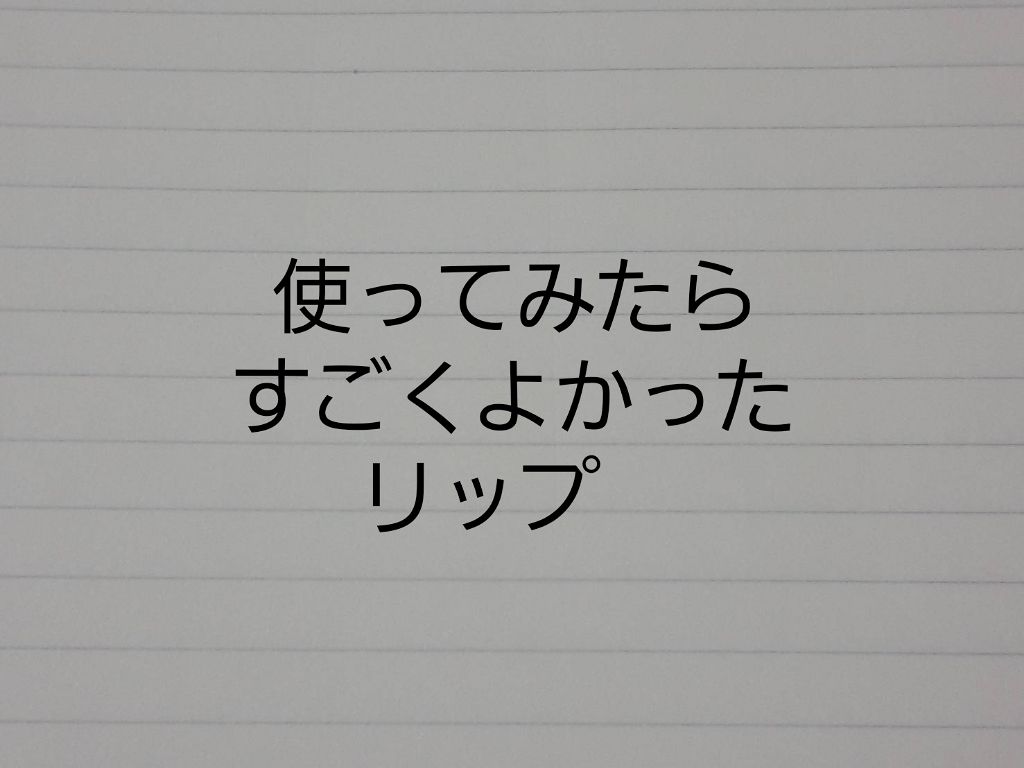 使ってみたら
すごくよかった
リップ